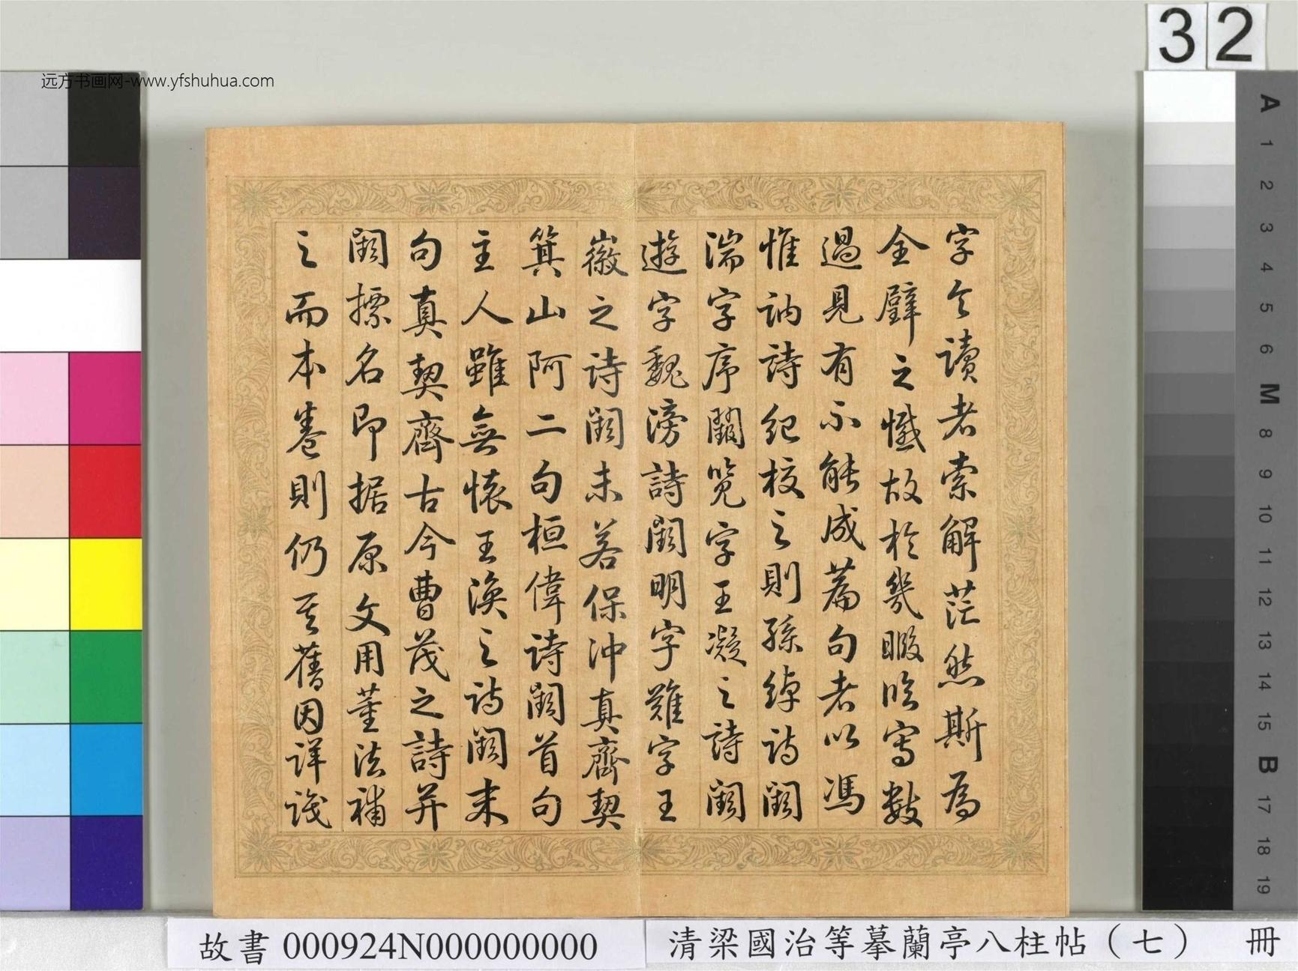 字令讀者索解茫然斯為
全璧之憾故於幾暇臨寫數
過見有不能成篇句者以馮
惟訥詩紀校之則孫綽詩闕
湍字序闕覽字王凝之詩闕
遊字魏滂詩闕明字難字王
徽之詩闕末若保沖真齊契
箕山阿二句桓偉詩闕首句
主人雖無懷王渙之詩闕末
句真契齊古今曹茂之詩并
闕標名即据原文用董法補
之而本卷則仍其舊因詳識
远方书画网-www.yfshuhua.com
32
A
1
2
3
4
5
6
M
8
9
10
11
12
13
14
15
B
17
18
19
故書 000924N000000000
清梁國治等摹蘭亭八柱帖（七） 冊